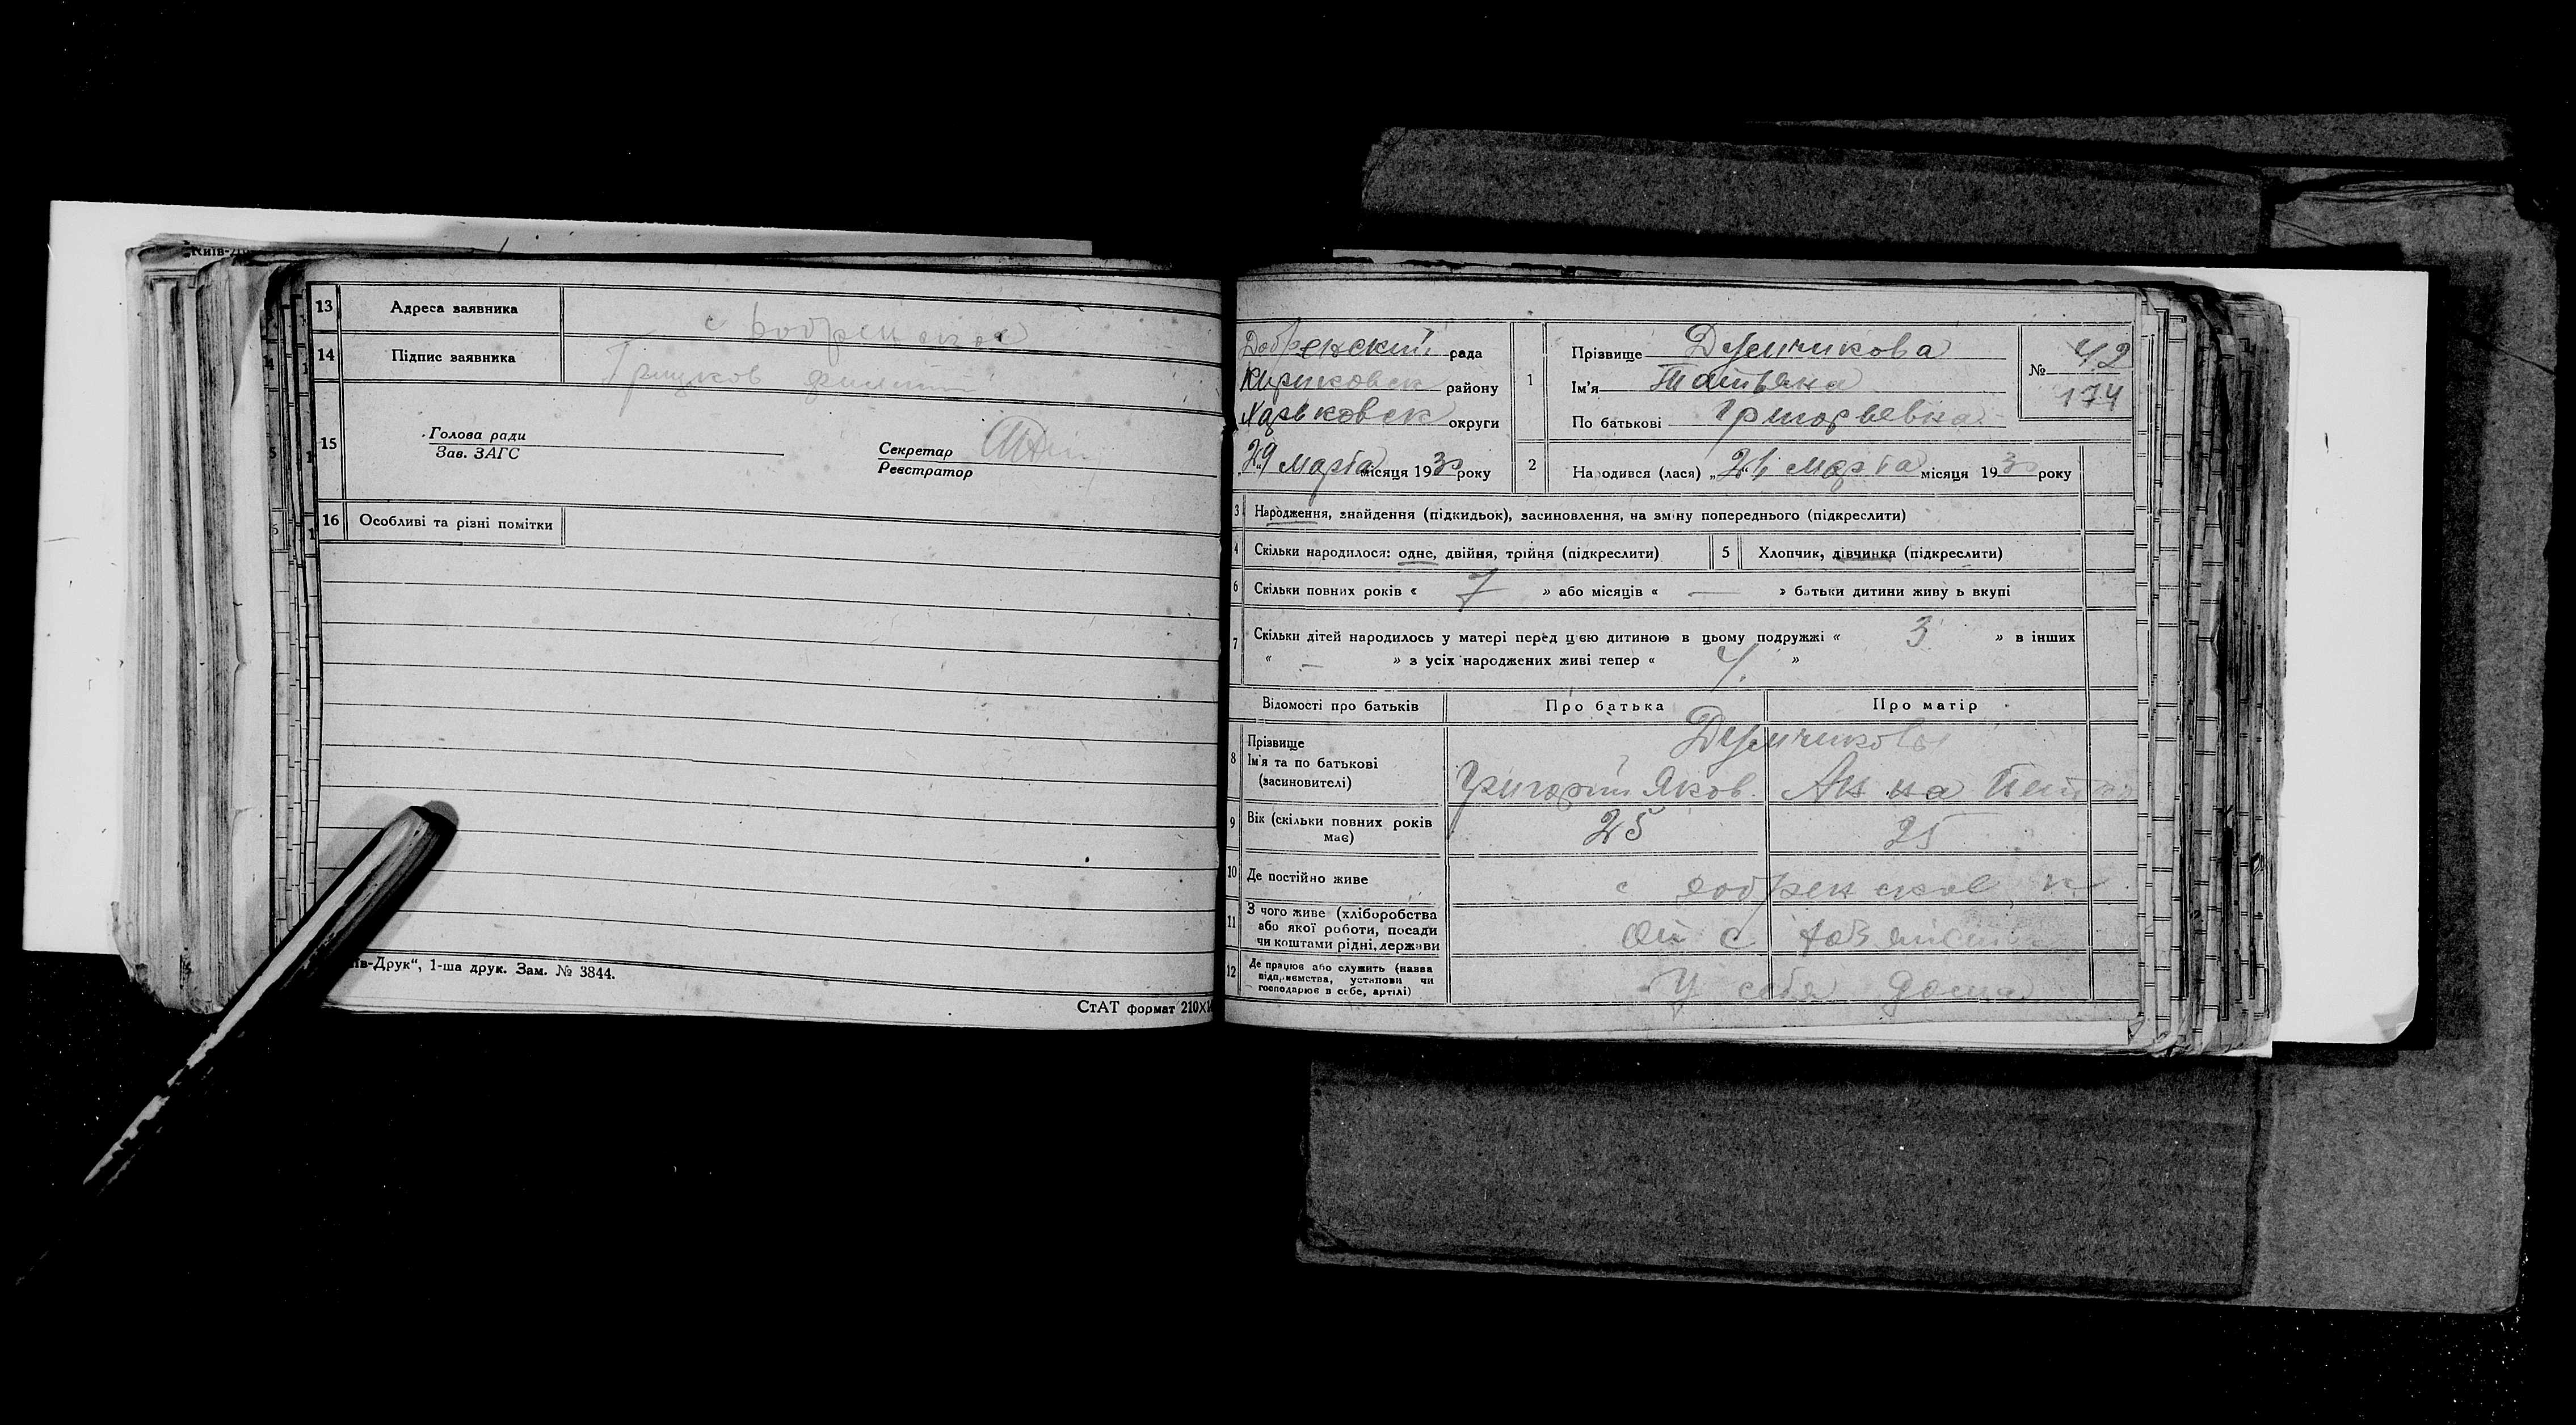 Київ-Др
13 Адреса заявника с Добренское
14 Підпис заявника Грицков
15 Голова ради
Зав. ЗАГС
Секретар
Реєстратор
16 Особливі та різні помітки
їв-Друк“, 1-ша друк. Зам. № 3844.
СтАТ формат 210×1
Добренский рада
район­у
Харьковск округи
„29 Марта місяця 1930 року
1 Прізвище Демчикова
Ім’я Татьяна
По батькові Григорьевна
№ 42
174
2 Народився (лася) „21 Марта місяця 1930 року
3 Народження, знайдення (підкидьок), засиновлення, на зміну попереднього (підкреслити)
4 Скільки народилося: одне, двійня, трійня (підкреслити) 5 Хлопчик, дівчинка (підкреслити)
6 Скільки повних років « 7 » або місяців « — » батьки дитини живу ь вкупі
7 Скільки дітей народилось у матері перед цією дитиною в цьому подружжі « 3 » в інших
« — » з усіх народжених живі тепер « 4. »
Відомості про батьків Про батька Про матір
8 Прізвище Демчиковы
Ім’я та по батькові
(засновителі) Григорий Яков. Анна
9 Вік (скільки повних років
має) 25 25
10 Де постійно живе с Добренское
11 З чого живе (хліборобства
або якої роботи, посади
чи коштами рідні, держави
12 Де працює або служить (назва
підприємства, установи чи
господарює в себе, артілі) У себя дома